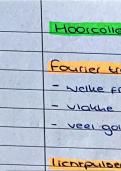 Hoorcolle
Fourier tr
- welke fr
- vlakke
- veel gol
lichtpulse